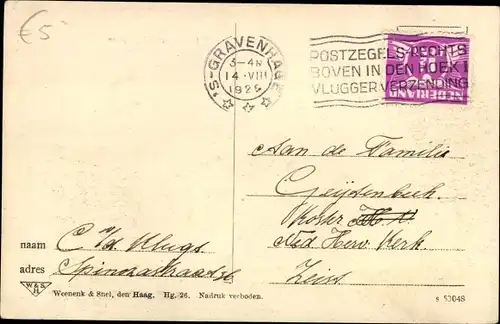 €5
'S-GRAVENHAGE
3-4N
14 VIII
1929
POSTZEGELS RECHTS
BOVEN IN DEN HOEK!
VLUGGER VERZENDING
NEDERLAND
Aan de Familie
Geijtenbeek.
Koster
Ned. Herv. Kerk.
Zeist.
naam C. v/d. Klugt
adres Spinozastraat 36
W&S
H
Weenenk & Snel, den Haag. Hg. 26. Nadruk verboden.
s 53048